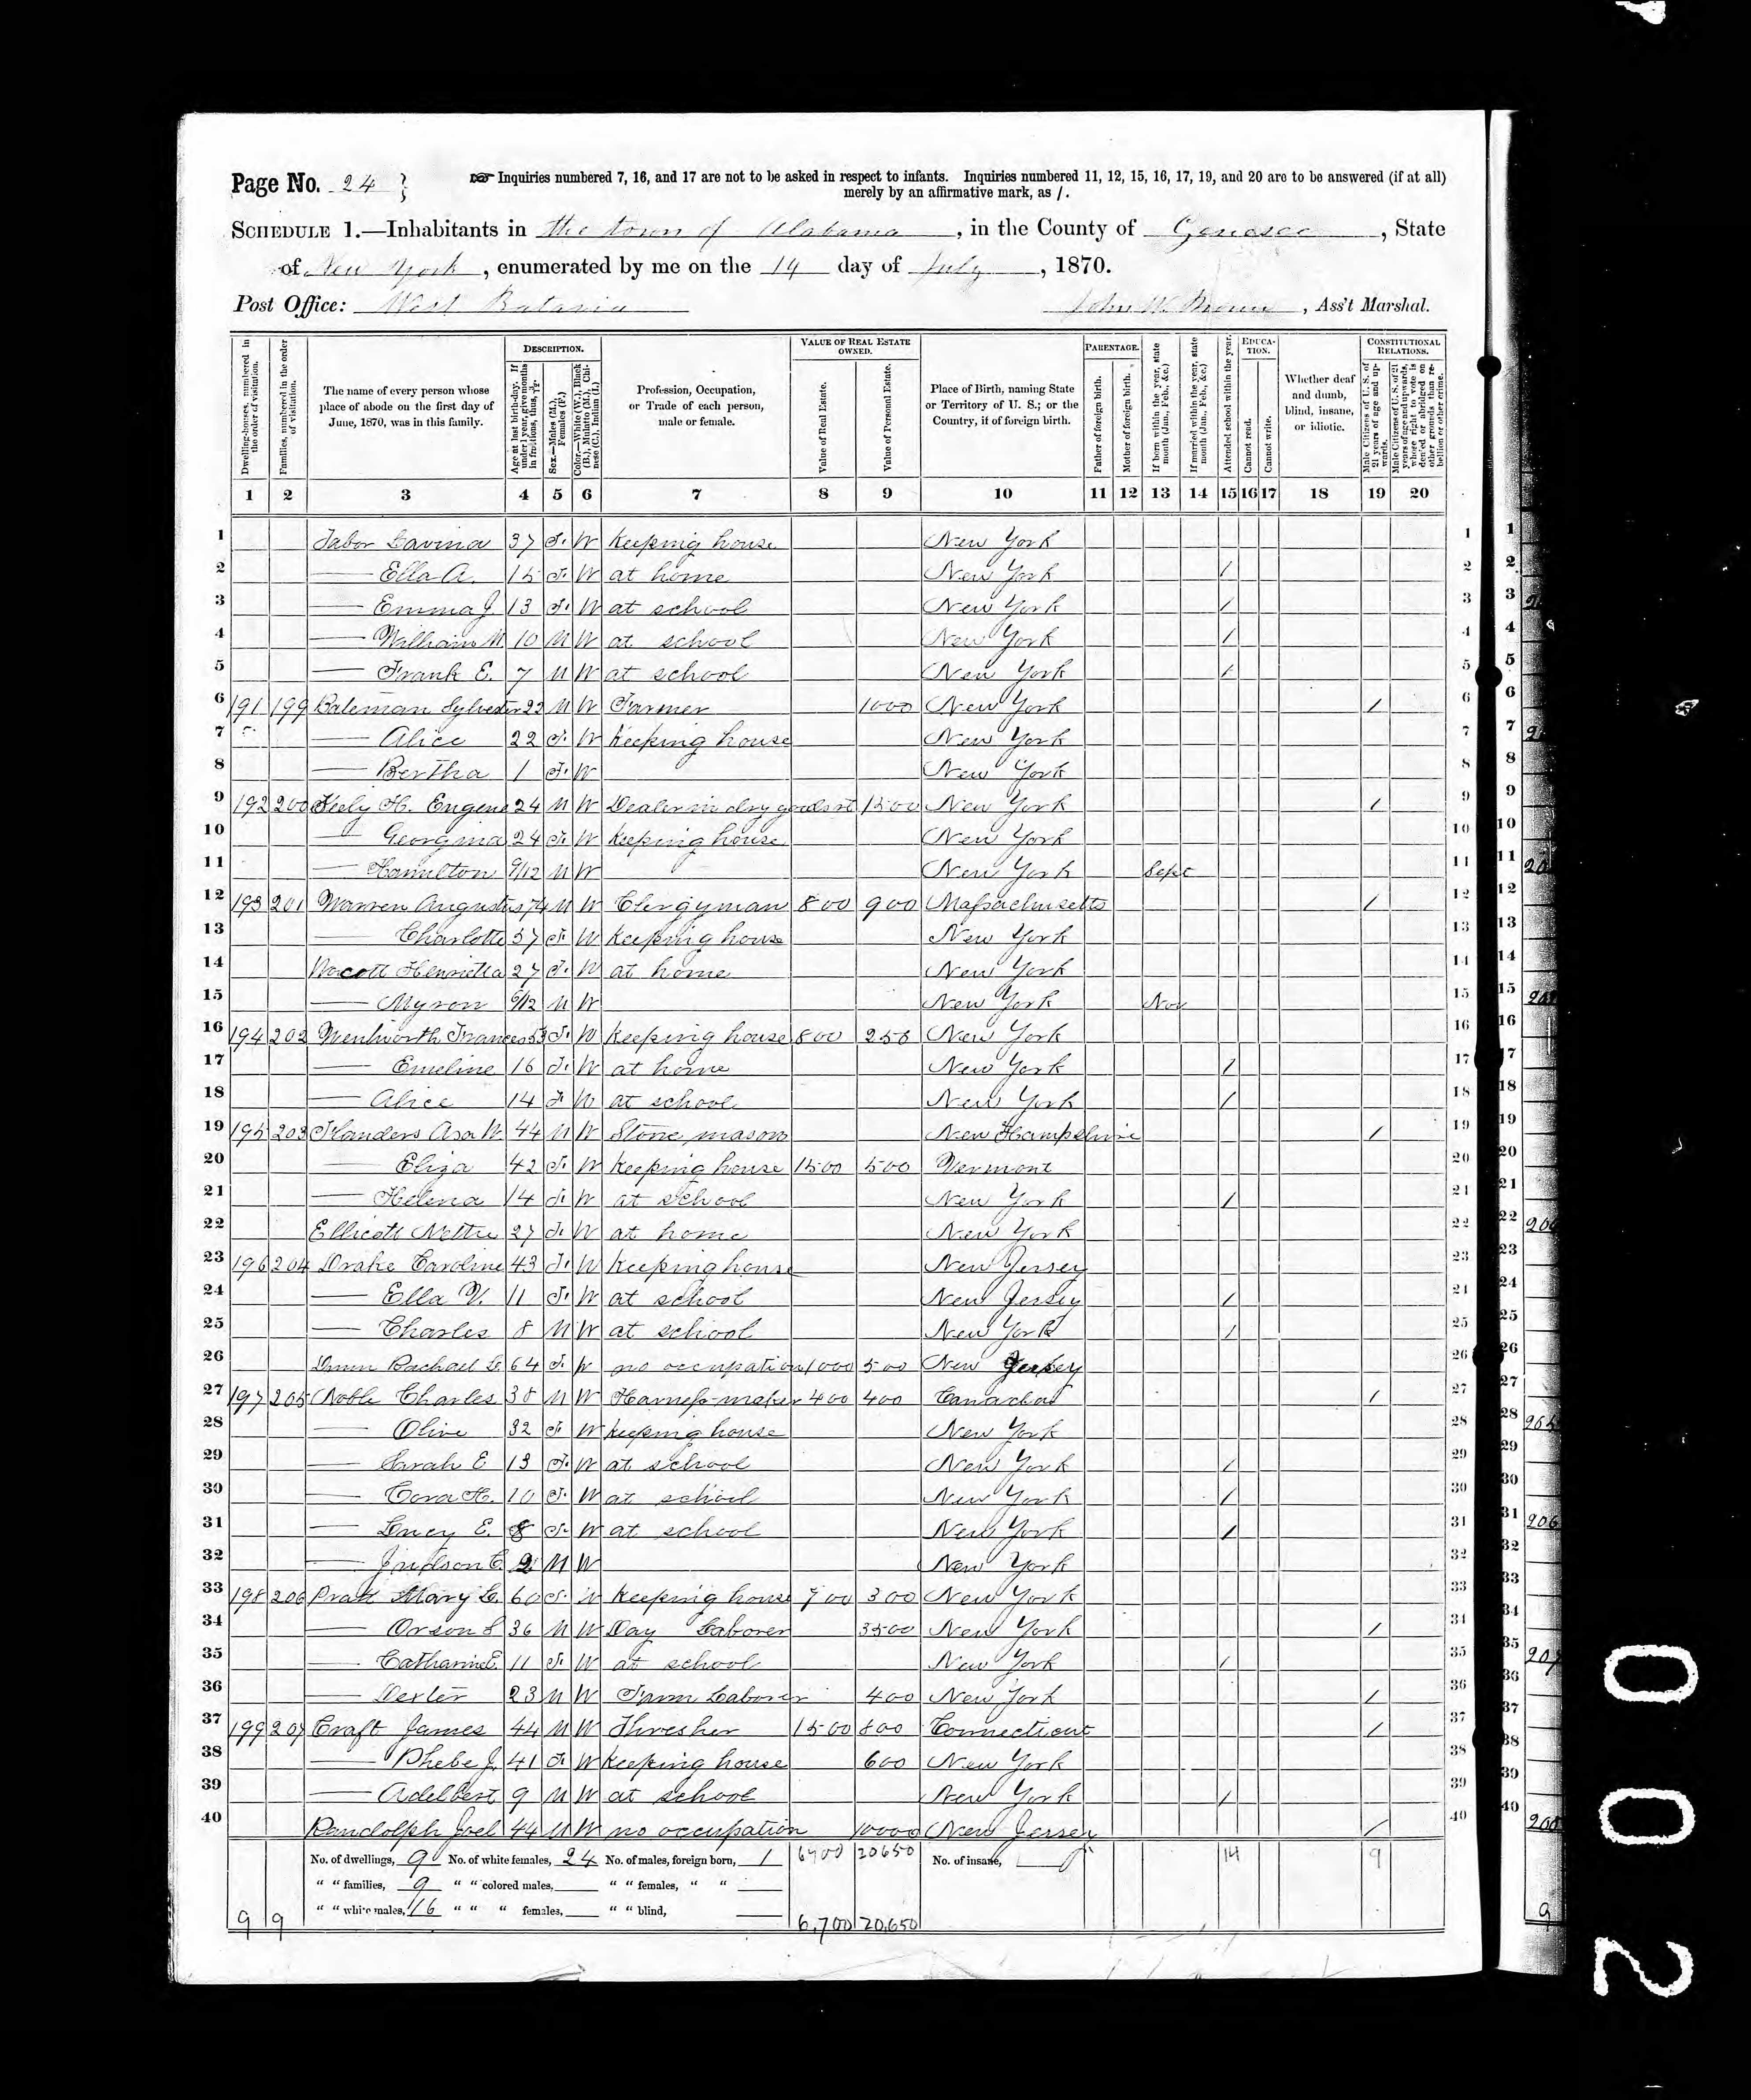 Page No. 24
☞ Inquiries numbered 7, 16, and 17 are not to be asked in respect to infants. Inquiries numbered 11, 12, 15, 16, 17, 19, and 20 are to be answered (if at all)
merely by an affirmative mark, as /.
SCHEDULE 1.—Inhabitants in the town of Alabama, in the County of Genesee, State
of New York, enumerated by me on the 14 day of July, 1870.
Post Office: West Batavia John W. Brown, Ass't Marshal.
Dwelling-houses, numbered in the order of visitation.
Families, numbered in the order of visitation.
The name of every person whose place of abode on the first day of June, 1870, was in this family.
DESCRIPTION.
Age at last birth-day. If under 1 year, give months in fractions, thus,
Sex.—Males (M.), Females (F.)
Color.—White (W.), Black (B.), Mulatto (M.), Chinese (C.), Indian (I.)
Profession, Occupation, or Trade of each person, male or female.
VALUE OF REAL ESTATE OWNED.
Value of Real Estate.
Value of Personal Estate.
Place of Birth, naming State or Territory of U. S.; or the Country, if of foreign birth.
PARENTAGE.
Father of foreign birth.
Mother of foreign birth.
If born within the year, state month (Jan., Feb., &c.)
If married within the year, state month (Jan., Feb., &c.)
Attended school within the year.
EDUCATION.
Cannot read.
Cannot write.
Whether deaf and dumb, blind, insane, or idiotic.
CONSTITUTIONAL RELATIONS.
Male Citizens of U. S. of 21 years of age and upwards.
Male Citizens of U. S. of 21 years of age and upwards, whose right to vote is denied or abridged on other grounds than rebellion or other crime.
1 2 3 4 5 6 7 8 9 10 11 12 13 14 15 16 17 18 19 20
1 Tabor Lavina 37 F. W Keeping house New York 1
2 —— Ella A. 15 F. W at home New York / 2
3 —— Emma J. 13 F. W at school New York / 3
4 —— William M. 10 M W at school New York / 4
5 —— Frank E. 7 M W at school New York / 5
6 191 199 Bateman Sylvester 22 M W Farmer 1000 New York / 6
7 —— Alice 22 F. W Keeping house New York 7
8 —— Bertha 1 F. W New York 8
9 192 200 Seely H. Eugene 24 M W Dealer in dry goods 1500 New York / 9
10 —— Georgina 24 F. W Keeping house New York 10
11 —— Hamilton 9/12 M W New York Sept 11
12 193 201 Warren Augustus 74 M W Clergyman 800 900 Massachusetts / 12
13 —— Charlotte 57 F. W Keeping house New York 13
14 Henrietta 27 F. W at home New York 14
15 —— Myron 6/12 M W New York Nov 15
16 194 202 Wentworth Frances 53 F. W Keeping house 800 250 New York 16
17 —— Emeline 16 F. W at home New York / 17
18 —— Alice 14 F. W at school New York / 18
19 195 203 Flanders Asa W. 44 M W Stone mason New Hampshire / 19
20 —— Eliza 42 F. W Keeping house 1500 500 Vermont 20
21 —— Helena 14 F. W at school New York / 21
22 Ellicott Nettie 27 F. W at home New York 22
23 196 204 Drake Caroline 43 F. W Keeping house New Jersey 23
24 —— Ella V. 11 F. W at school New Jersey / 24
25 —— Charles 8 M W at school New York / 25
26 Rachael L. 64 F. W no occupation 1000 500 New Jersey 26
27 197 205 Noble Charles 38 M W Harness-maker 400 400 Canada / 27
28 —— Olive 32 F. W Keeping house New York 28
29 —— Sarah E 13 F. W at school New York / 29
30 —— Cora H. 10 F. W at school New York / 30
31 —— Lucy E. 8 F. W at school New York / 31
32 —— Judson C. 2 M W New York 32
33 198 206 Pratt Mary L. 60 F. W Keeping house 700 300 New York 33
34 —— Orson S 36 M W Day Laborer 3500 New York / 34
35 —— Catharine E. 11 F. W at school New York / 35
36 —— Dexter 23 M W Farm Laborer 400 New York / 36
37 199 207 Craft James 44 M W Thresher 1500 800 Connecticut / 37
38 —— Phebe J. 41 F. W Keeping house 600 New York 38
39 —— Adelbert 9 M W at school New York / 39
40 Randolph Joel 44 M W no occupation 10000 New Jersey / 40
No. of dwellings, 9 No. of white females, 24 No. of males, foreign born, 1 6700 20650 No. of insane, 14 9
" " families, 9 " " colored males, " " females, " "
" " white males, 16 " " " females, " " blind,
9 9 6,700 20,650 9
002